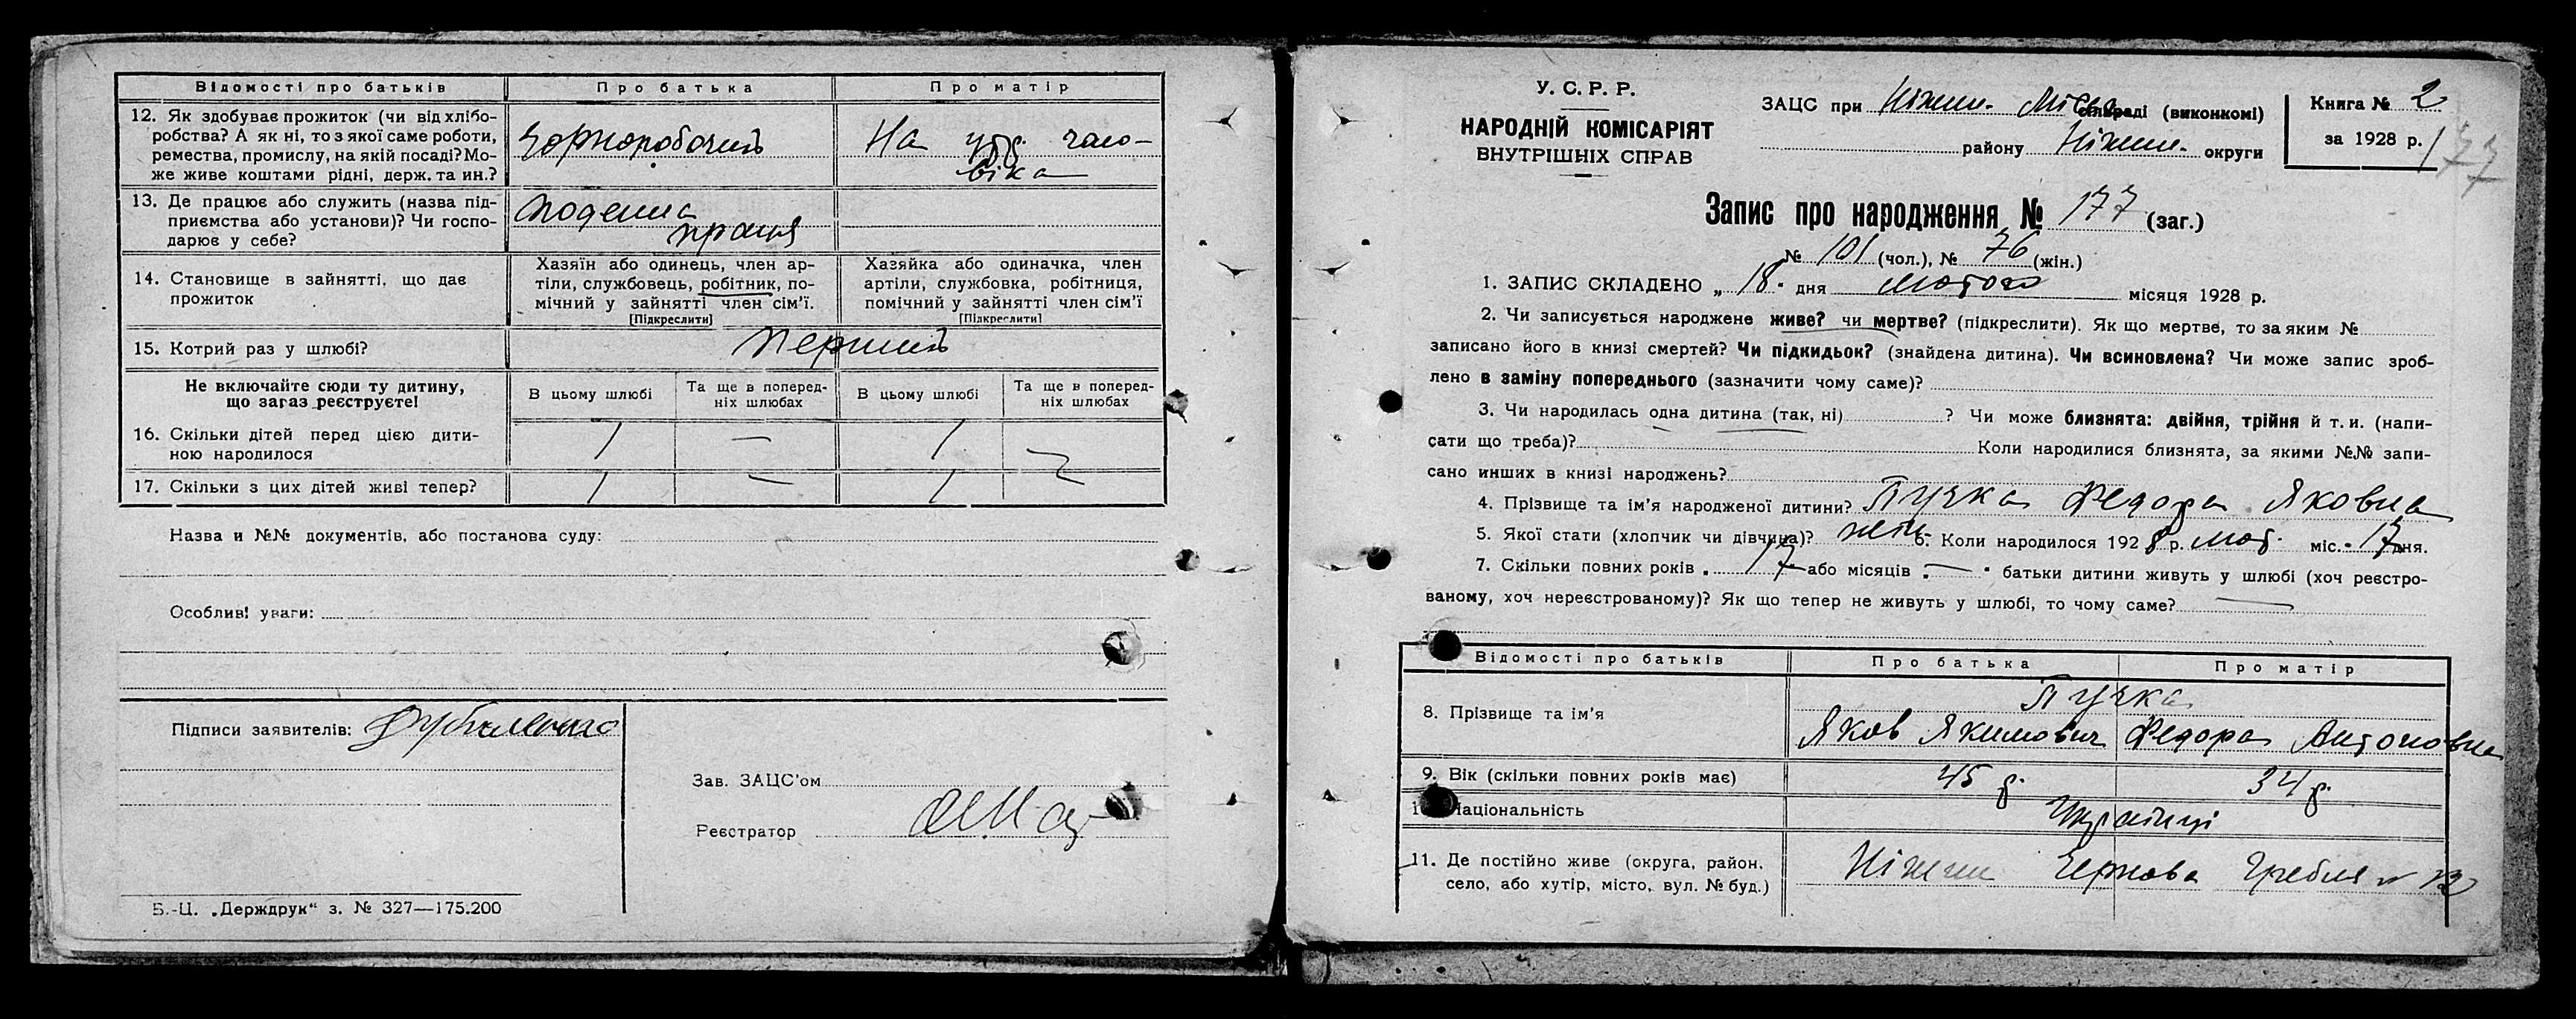 Відомості про батьків
Про батька
Про матір
12. Як здобуває прожиток (чи від хлібо-
робства? А як ні, то з якої саме роботи,
ремества, промислу, на якій посаді? Мо-
же живе коштами рідні, держ. та ин.?
Чорноробочий
На утр. чоло-
віка
13. Де працює або служить (назва під-
приємства або установи)? Чи госпо-
дарює у себе?
Поденна
праця
14. Становище в зайнятті, що дає
прожиток
Хазяїн або одинець, член ар-
тіли, службовець, робітник, по-
мічний у зайнятті член сім'ї.
[Підкреслити]
Хазяйка або одиначка, член
артіли, службовка, робітниця,
помічний у зайнятті член сім'ї
[Підкреслити]
15. Котрий раз у шлюбі?
Перший
Не включайте сюди ту дитину,
що загаз реєструєте!
В цьому шлюбі
Та ще в поперед-
ніх шлюбах
В цьому шлюбі
Та ще в поперед-
ніх шлюбах
16. Скільки дітей перед цією дити-
ною народилося
1 — 1 —
17. Скільки з цих дітей живі тепер?
1 — 1 —
Назва и №№ документів, або постанова суду:
Особливі уваги:
Підписи заявителів:
Зав. ЗАЦС'ом
Реєстратор
Б.-Ц. „Держдрук“ з. № 327—175.200
У. С. Р. Р.
НАРОДНІЙ КОМІСАРІЯТ
ВНУТРІШНІХ СПРАВ
ЗАЦС при Ніжин. Міськ. сільраді (виконкомі)
району Ніжин. округи
Книга № 2
за 1928 р.
177
Запис про народження № 177 (заг.)
№ 101 (чол.), № 76 (жін.)
1. ЗАПИС СКЛАДЕНО „ 18 дня лютого місяця 1928 р.
2. Чи записується народжене живе? чи мертве? (підкреслити). Як що мертве, то за яким №
записано його в книзі смертей? Чи підкидьок? (знайдена дитина). Чи всиновлена? Чи може запис зроб-
лено в заміну попереднього (зазначити чому саме)?
3. Чи народилась одна дитина (так, ні) ? Чи може близнята: двійня, трійня й т. и. (напи-
сати що треба)? Коли народилися близнята, за якими №№ запи-
сано инших в книзі народжень?
4. Прізвище та ім'я народженої дитини? Пучка Федора Яковна
5. Якої стати (хлопчик чи дівчина)? жен. 6. Коли народилося 1928 р. лют. міс. 17 дня.
7. Скільки повних років 17 або місяців — батьки дитини живуть у шлюбі (хоч реєстро-
ваному, хоч нереєстрованому)? Як що тепер не живуть у шлюбі, то чому саме? —
Відомості про батьків
Про батька
Про матір
8. Прізвище та ім'я
Пучка
Яков Якимович
Федора Антоновна
9. Вік (скільки повних років має)
45 р.
34 р.
Національність
Українці
11. Де постійно живе (округа, район,
село, або хутір, місто, вул. № буд.)
Ніжин Чернова Гребля №